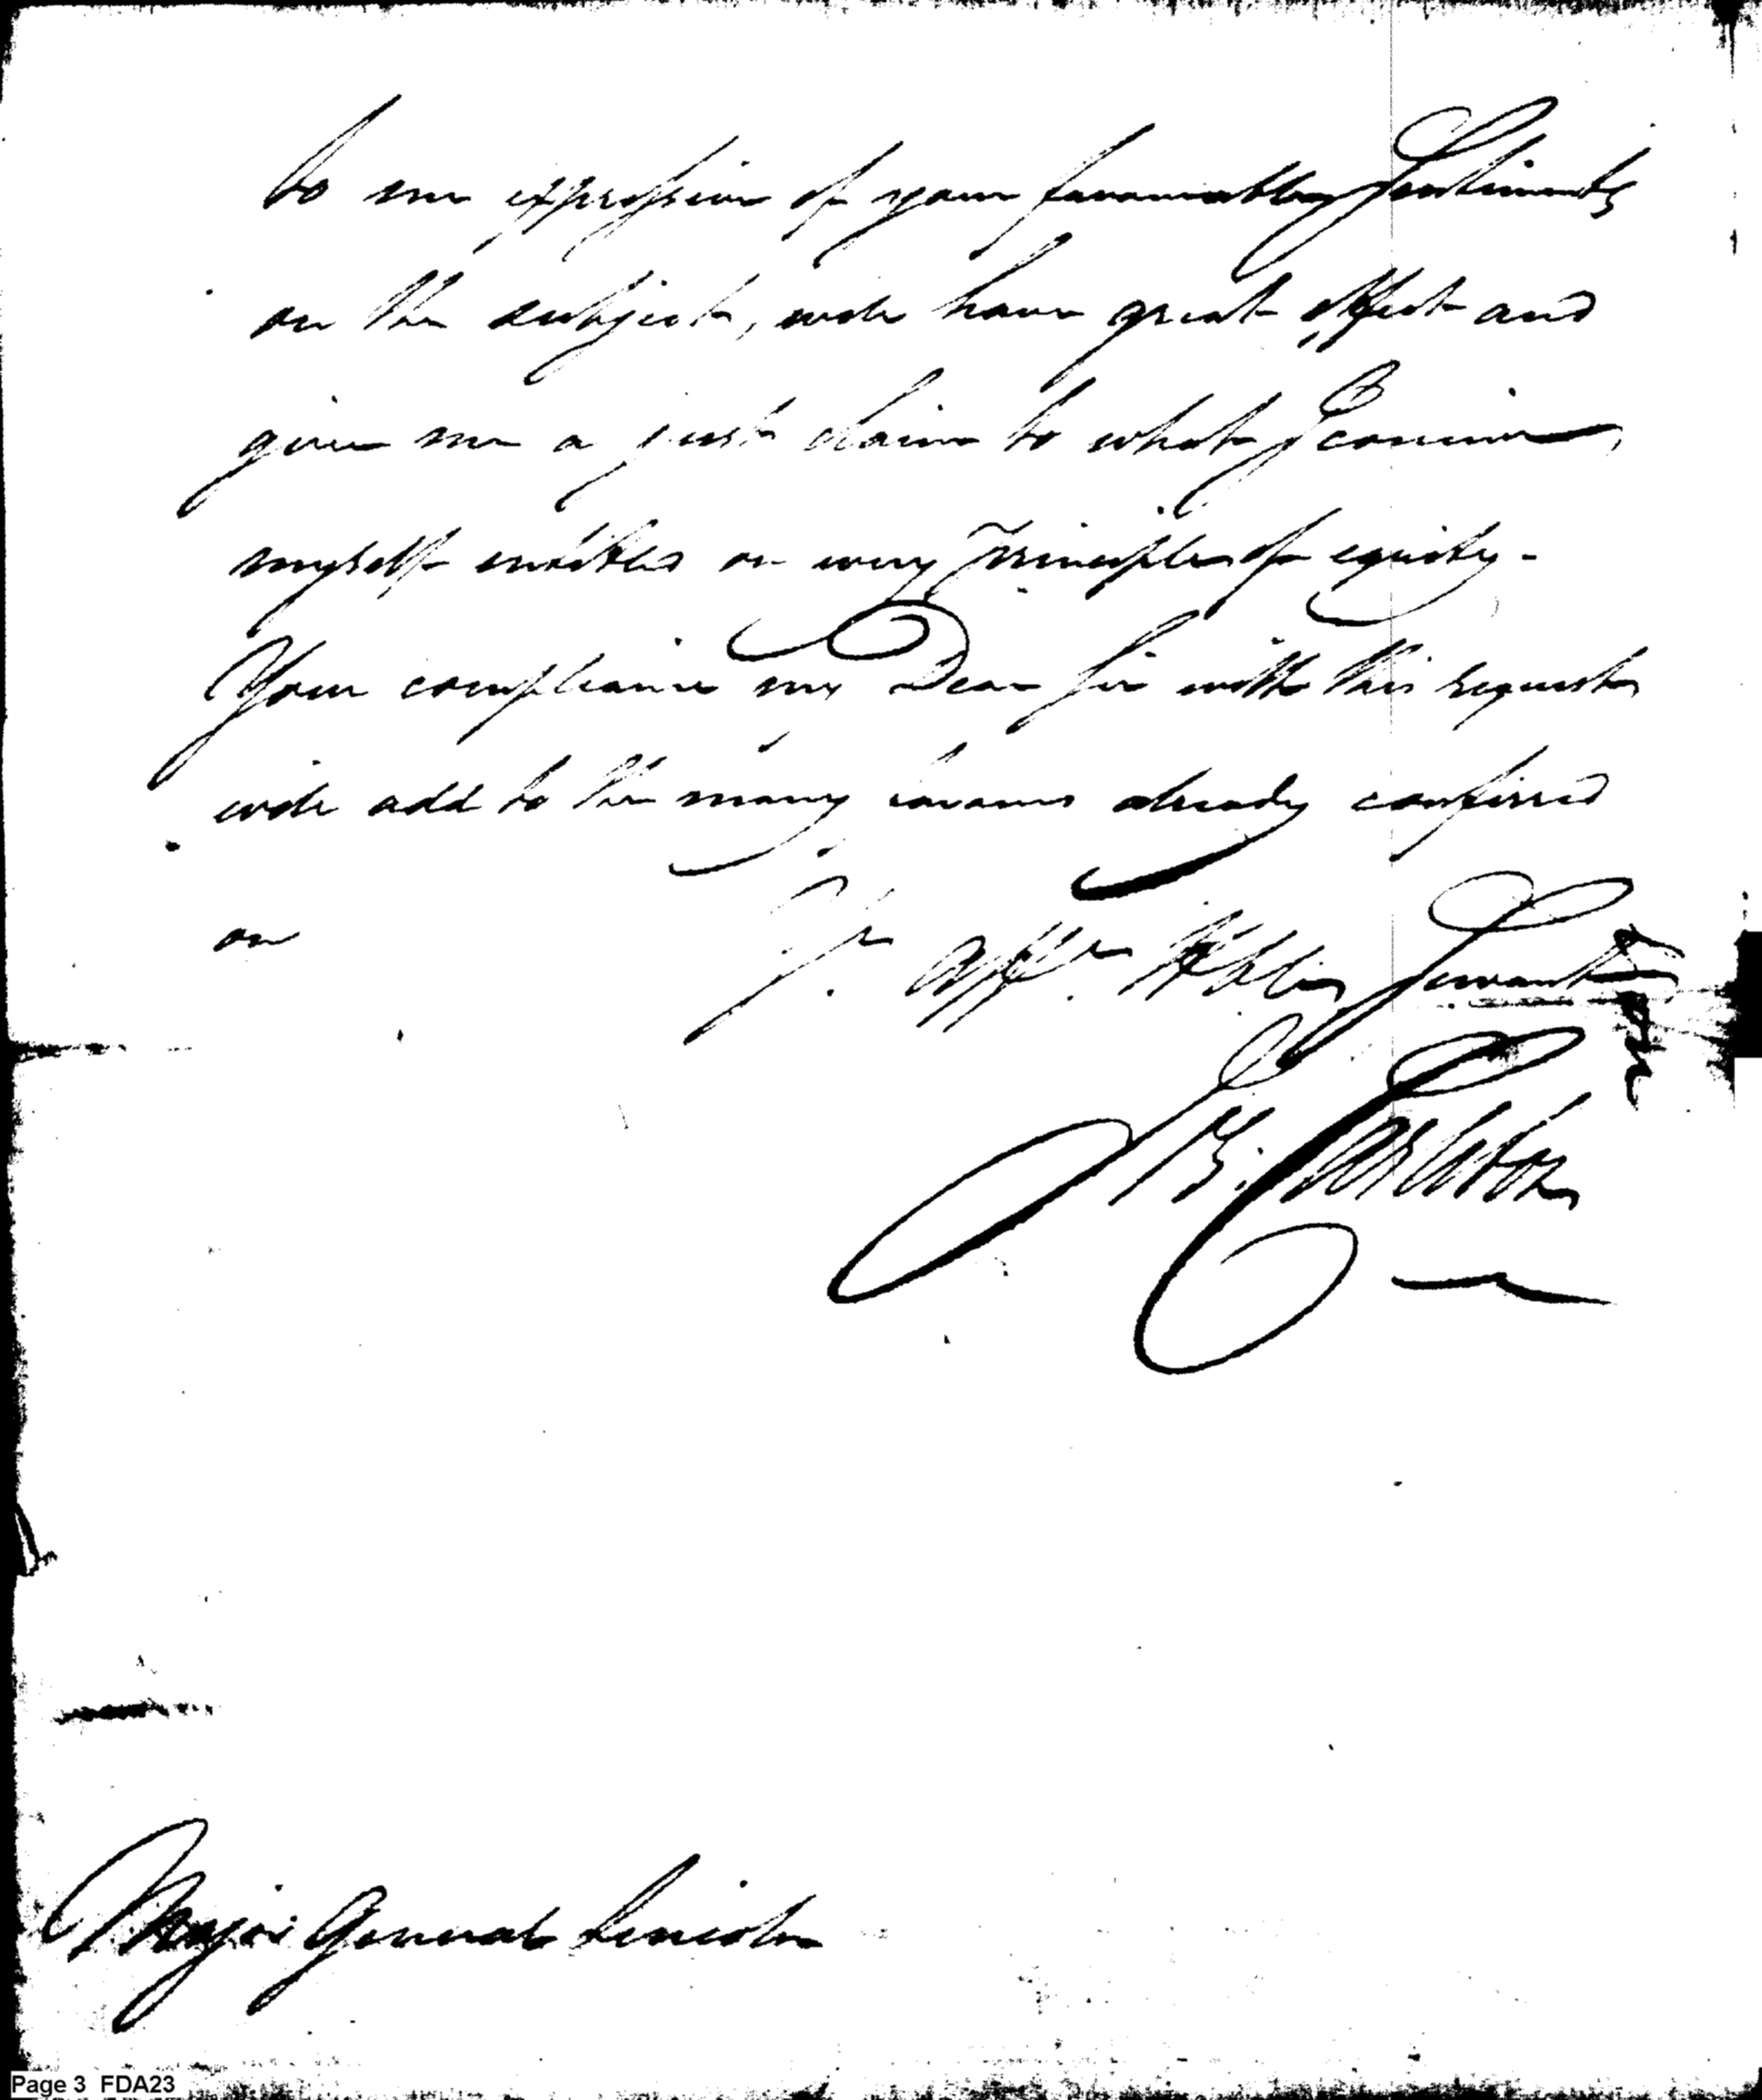 to me expressive of your favourable Sentiments
on the subject, will have great effect and
give me a just claim to what I conceive
myself entitled on every Principle of equity -
Your compliance my Dear Sir with this request
will add to the many favours already conferred
on Yr. Affte. Hble Servant
Major General Lincoln
Page 3 FDA23